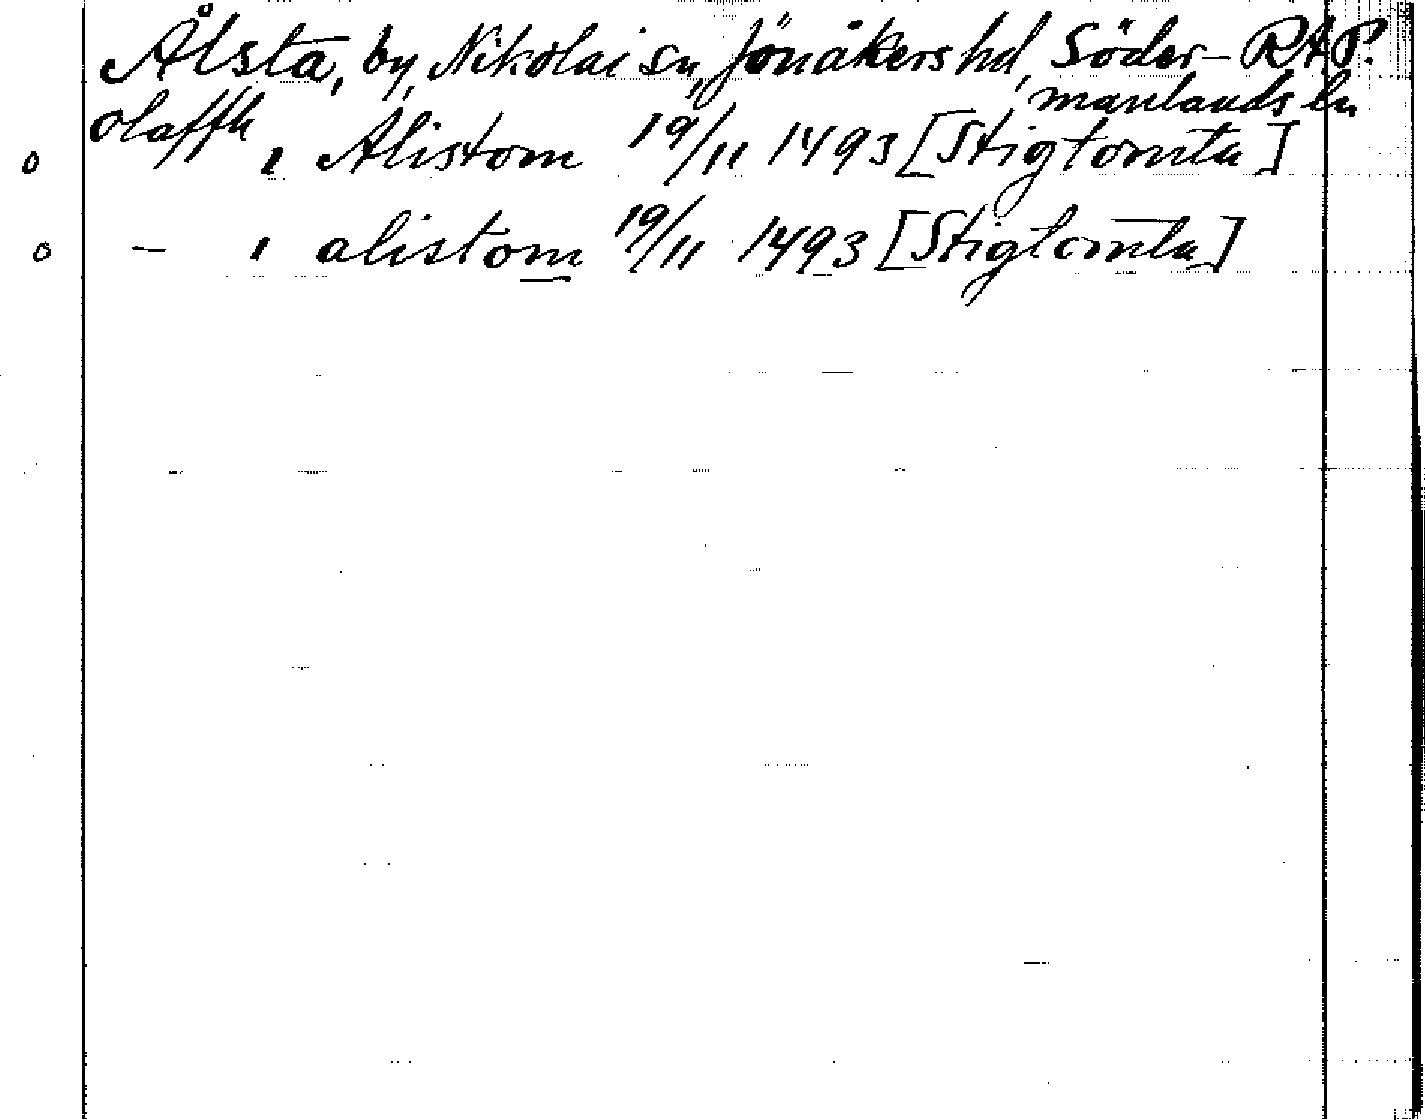 Ålsta, by, Nikolai sn, Jönåkers hd, Söder- RAP.
manlands ln
olaffh
o ı Alistom 19/11 1493 [Stigtomta]
o – ı alistom 19/11 1493 [Stigtomta]